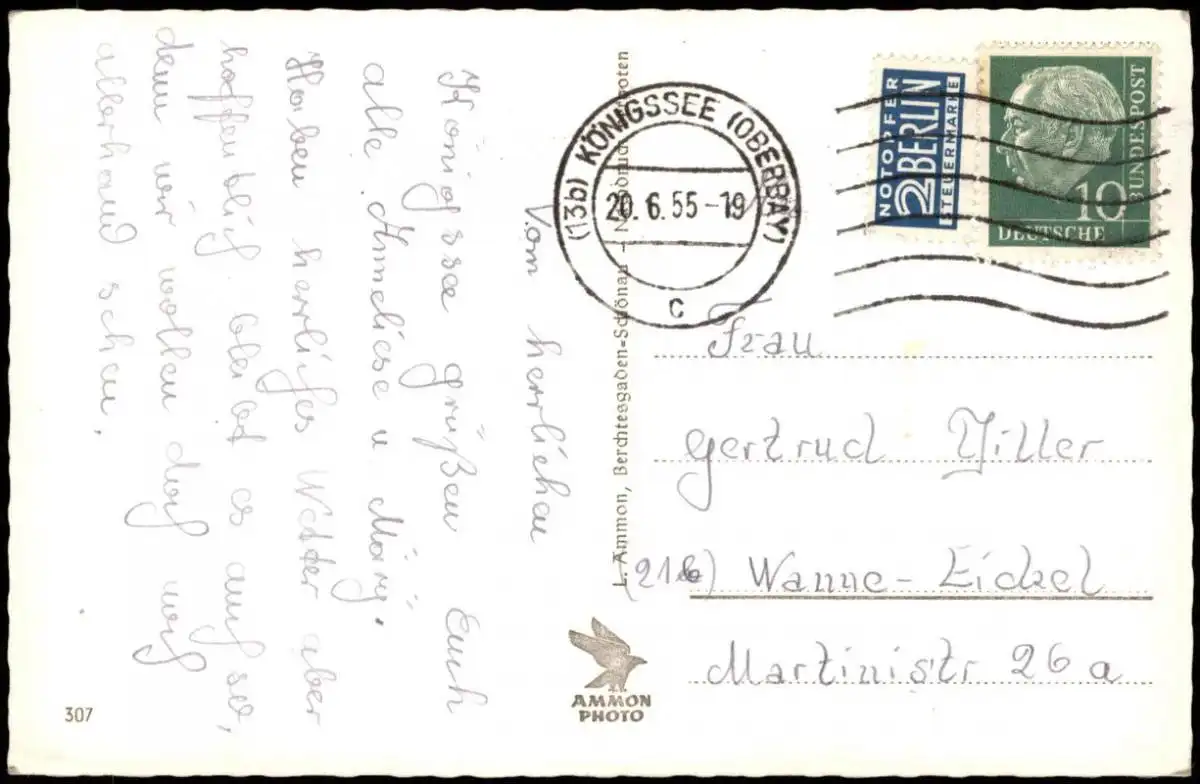 Vom herrlichen
Königssee grüßen Euch
alle Anneliese u
Haben herrliches Wetter aber
hoffentlich bleibt es auch so,
denn wir wollen doch noch
allerhand sehen.
L. Ammon, Berchtesgaden-Schönau – Nachdruck verboten
(13b) KÖNIGSSEE (OBERBAY)
20.6.55-19
c
NOTOPFER
2 BERLIN
STEUERMARKE
10
DEUTSCHE
BUNDESPOST
Frau
Gertrud
(21b) Wanne-Eickel
Martinistr 26a
AMMON
PHOTO
307